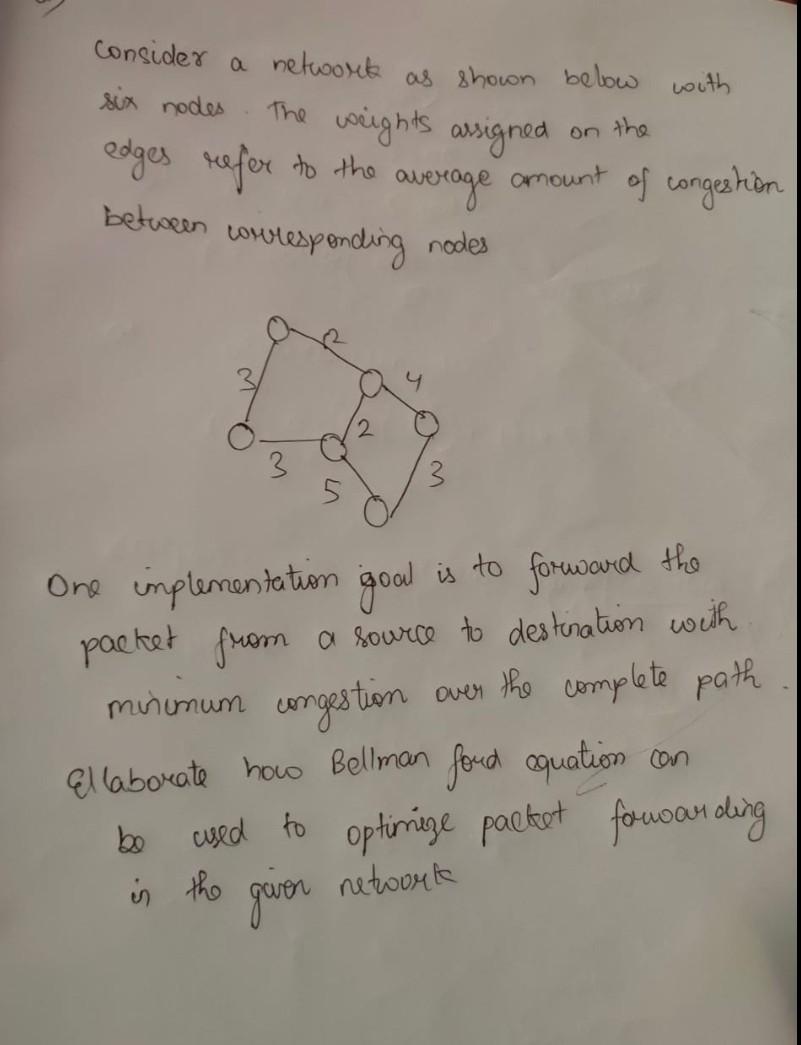 Consider a network as shown below with
six nodes. The weights assigned on the
edges refer to the average amount of congestion
between corresponding nodes
2
3
4
2
3
5
3
One implementation goal is to forward the
packet from a source to destination with
minimum congestion over the complete path.
Ellaborate how Bellman ford equation can
be used to optimize packet forwarding
in the given network